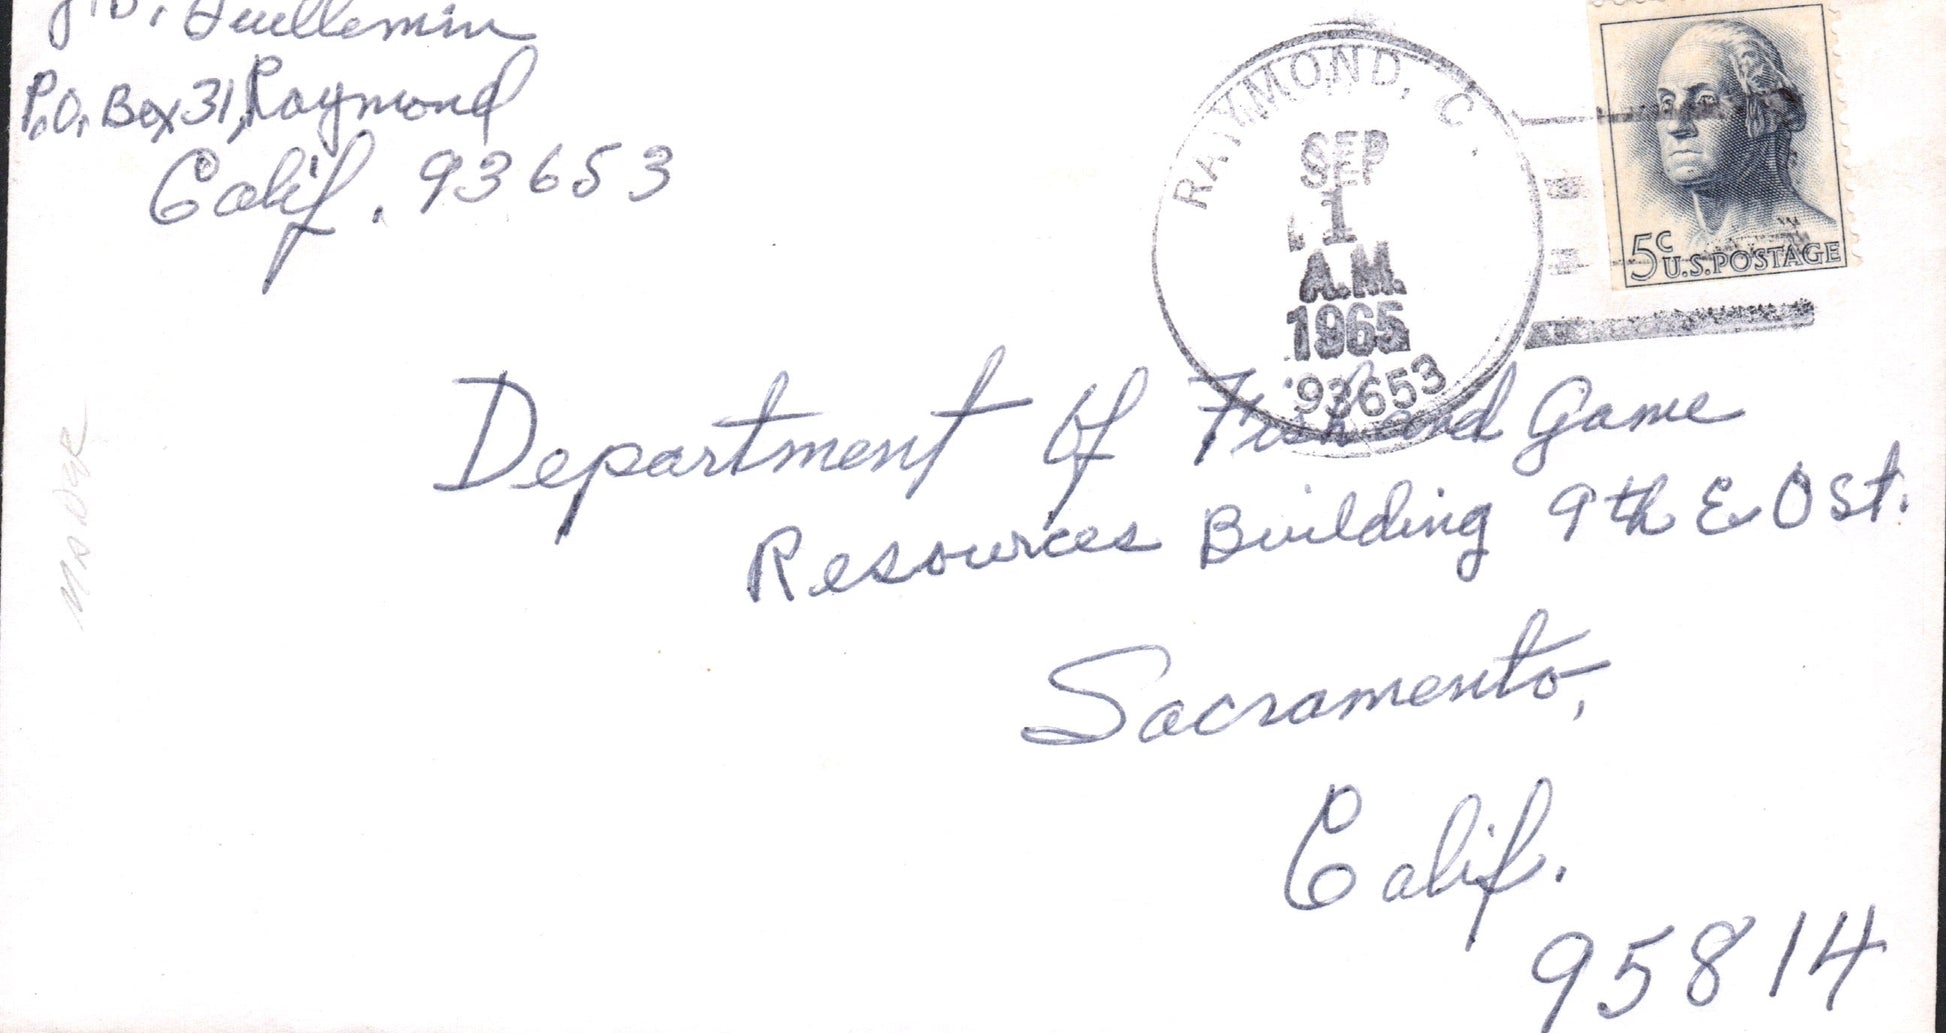 J.D. Guillemin
P.O. Box 31, Raymond
Calif. 93653
RAYMOND, C
SEP
1
A.M.
1965
93653
5c
U.S. POSTAGE
Department of Fish and Game
Resources Building 9th & O St.
Sacramento,
Calif.
95814